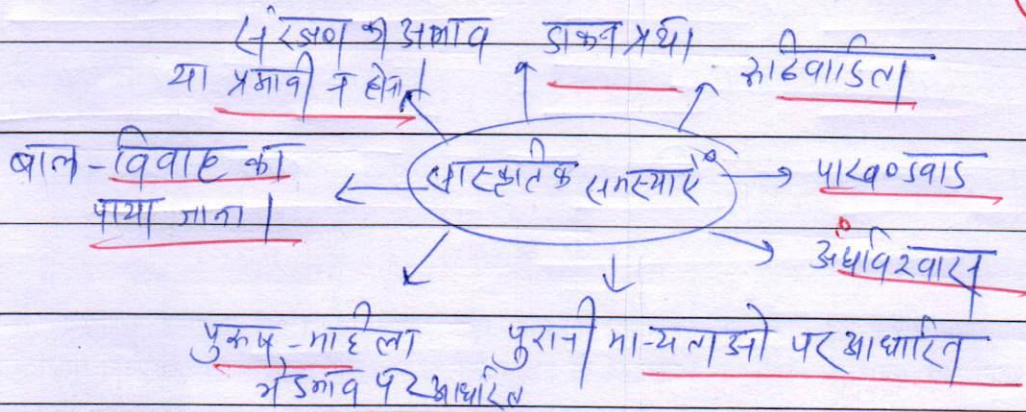 संरक्षण का अभाव
या प्रभावी न होना।
डाकन प्रथा
रूढिवादिता
बाल-विवाह का
पाया जाना।
सांस्कृतिक समस्याएं
पाखण्डवाद
अंधविश्वास
पुरूष-महिला
भेदभाव पर आधारित
पुरानी मान्यताओ पर आधारित